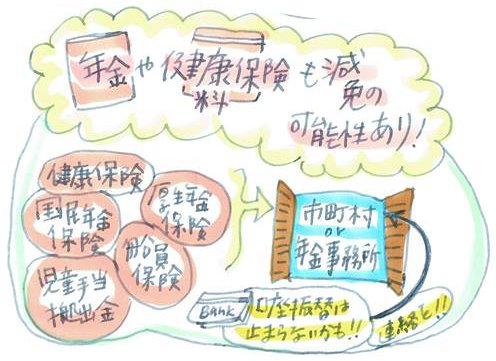 年金や健康保険料も減
免の
可能性あり!
健康保険
国民年金
保険
厚生年金
保険
船員
保険
児童手当
拠出金
市町村
or
年金事務所
Bank
口座振替は
止まらないかも!!
連絡を!!